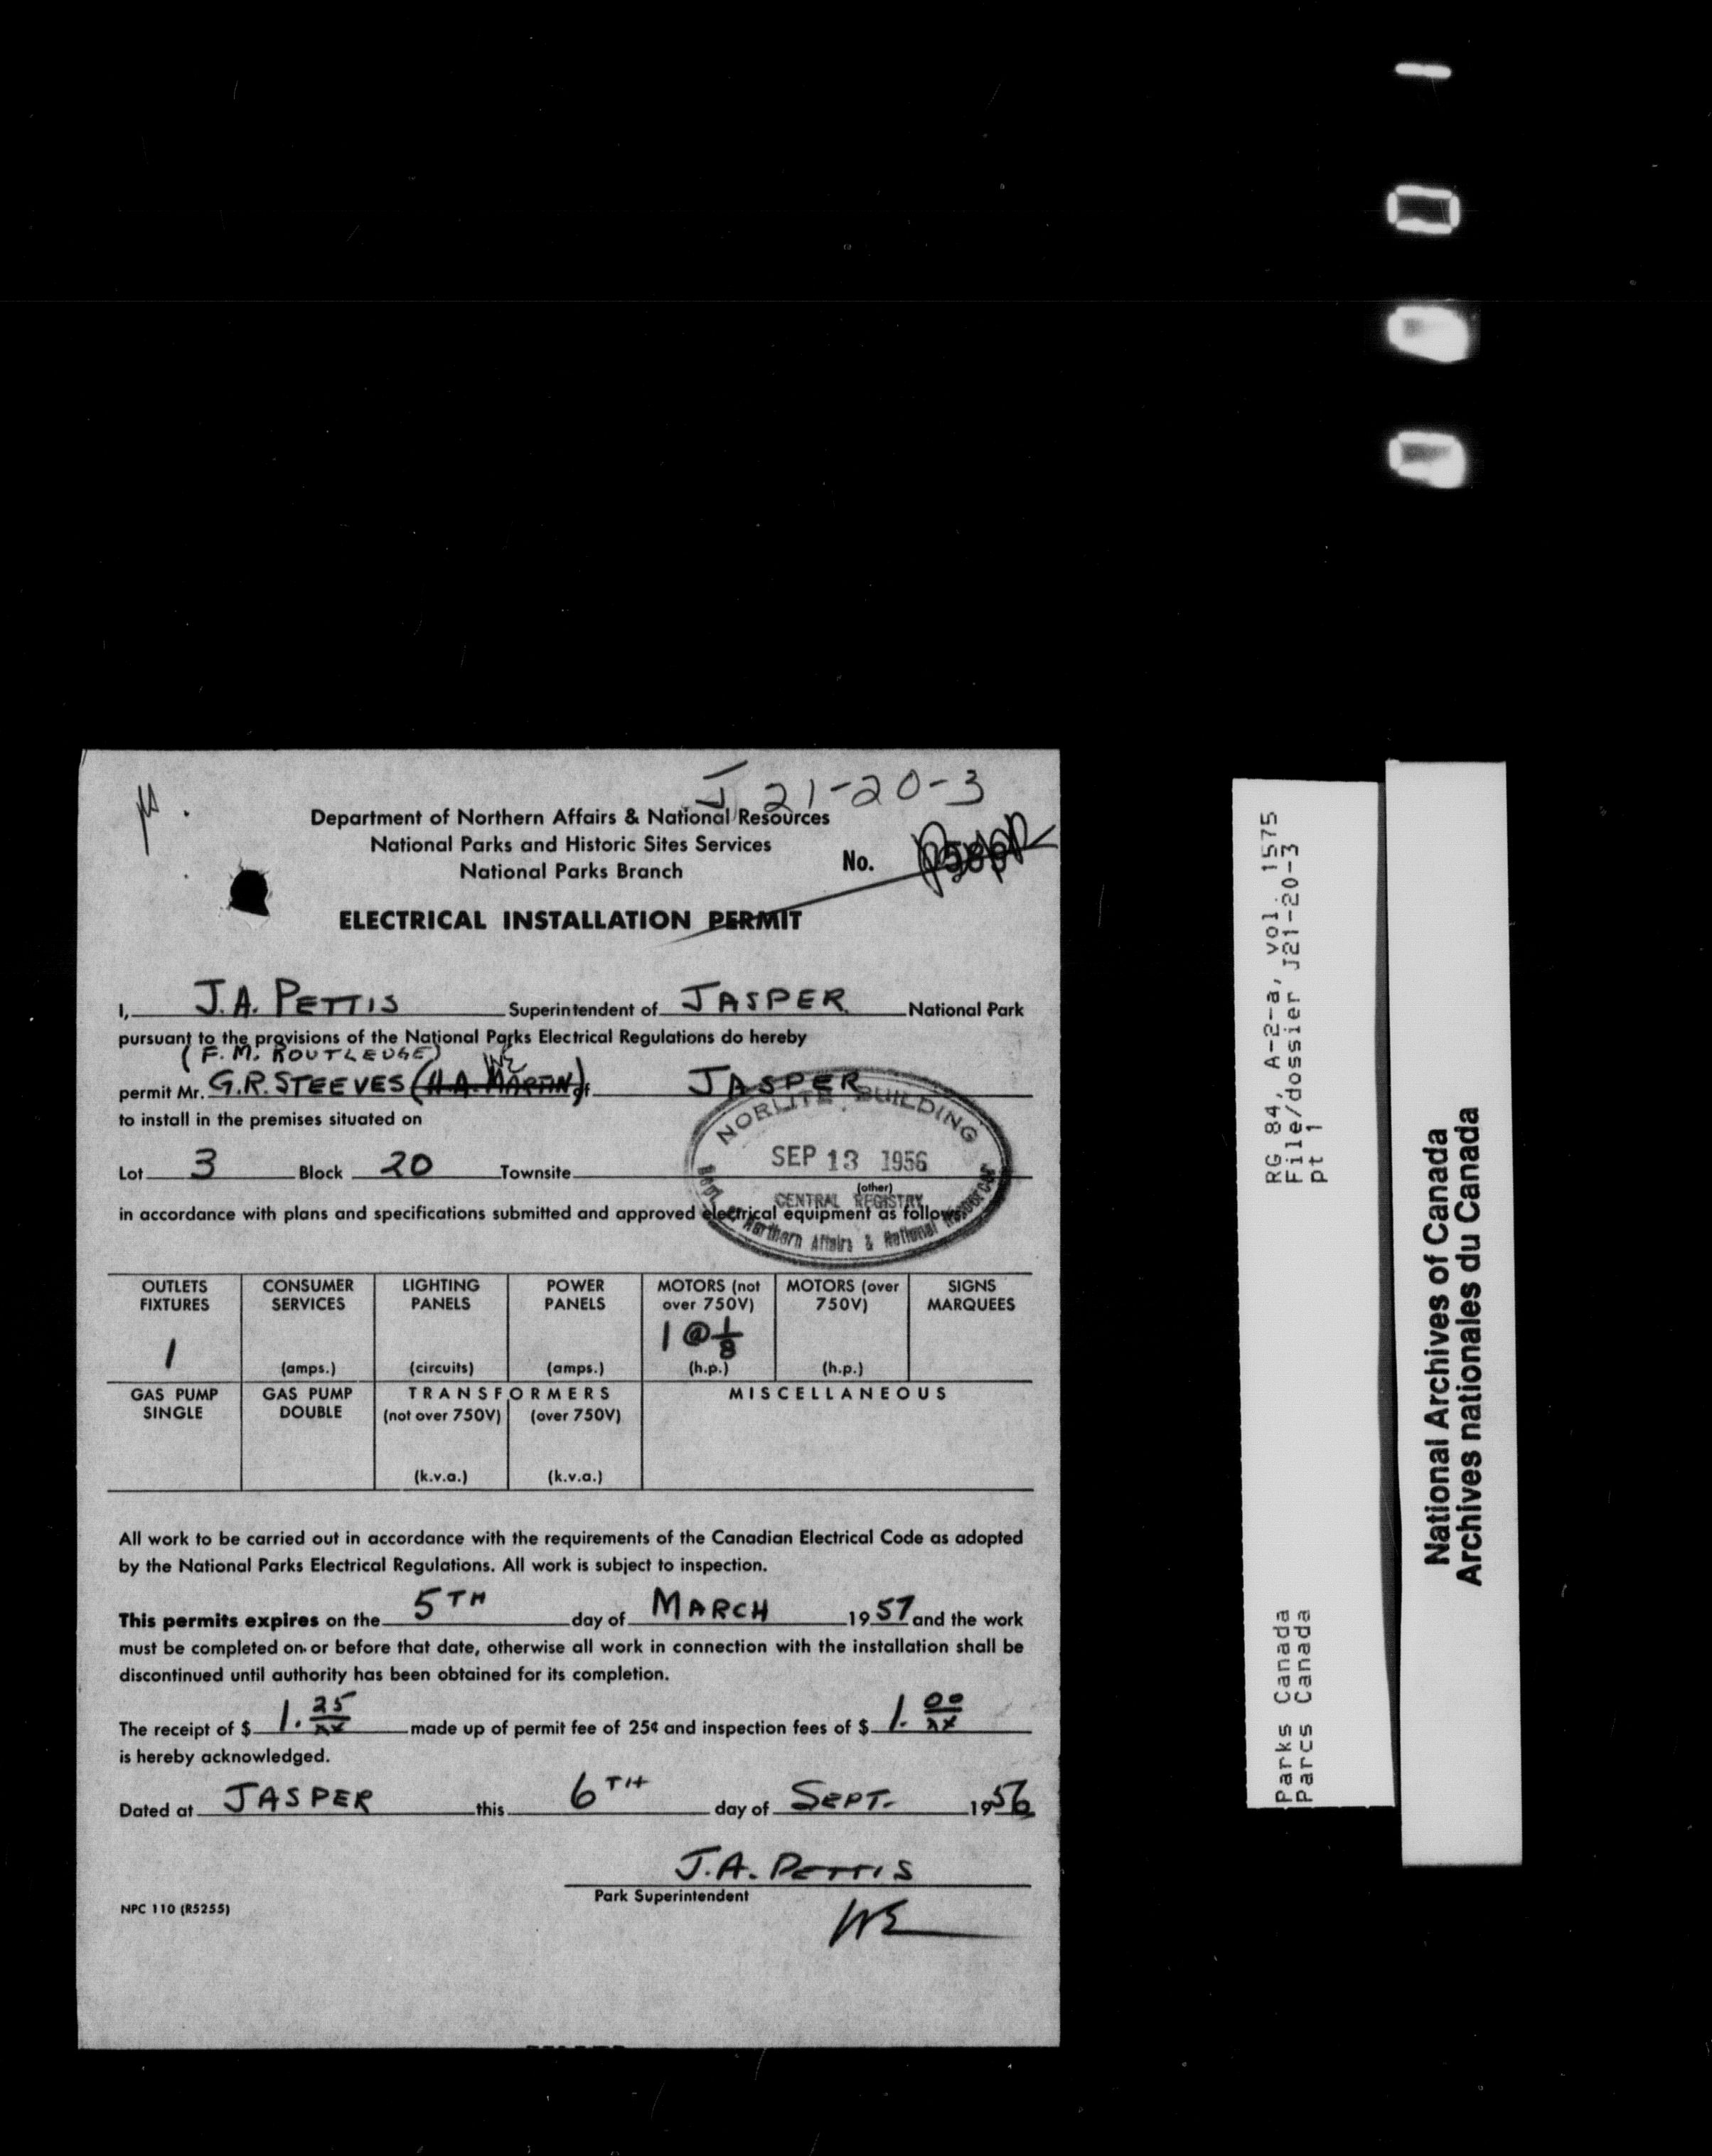 J 21-20-3
Department of Northern Affairs & National Resources
National Parks and Historic Sites Services
National Parks Branch
No.
ELECTRICAL INSTALLATION PERMIT
I, J.A. PETTIS Superintendent of JASPER National Park
pursuant to the provisions of the National Parks Electrical Regulations do hereby
(F. M. ROUTLEDGE)
permit Mr. G.R. STEEVES (H.A. MARTIN) of JASPER
to install in the premises situated on
NORLITE BUILDING
SEP 13 1956
CENTRAL REGISTRY
Dept. of Northern Affairs & National Resources
Lot 3 Block 20 Townsite
(other)
in accordance with plans and specifications submitted and approved electrical equipment as follows
OUTLETS FIXTURES CONSUMER SERVICES LIGHTING PANELS POWER PANELS MOTORS (not over 750V) MOTORS (over 750V) SIGNS MARQUEES
1 1 @ 1/8
(amps.) (circuits) (amps.) (h.p.) (h.p.)
GAS PUMP SINGLE GAS PUMP DOUBLE TRANSFORMERS MISCELLANEOUS
(not over 750V) (over 750V)
(k.v.a.) (k.v.a.)
All work to be carried out in accordance with the requirements of the Canadian Electrical Code as adopted
by the National Parks Electrical Regulations. All work is subject to inspection.
This permits expires on the 5TH day of MARCH 1957 and the work
must be completed on or before that date, otherwise all work in connection with the installation shall be
discontinued until authority has been obtained for its completion.
The receipt of $ 1.25/xx made up of permit fee of 25¢ and inspection fees of $ 1.00/xx
is hereby acknowledged.
Dated at JASPER this 6TH day of SEPT. 1956
J.A. PETTIS
Park Superintendent
NPC 110 (R5255)
RG 84, A-2-a, vol. 1575
File/dossier J21-20-3
pt 1
Parks Canada
Parcs Canada
National Archives of Canada
Archives nationales du Canada